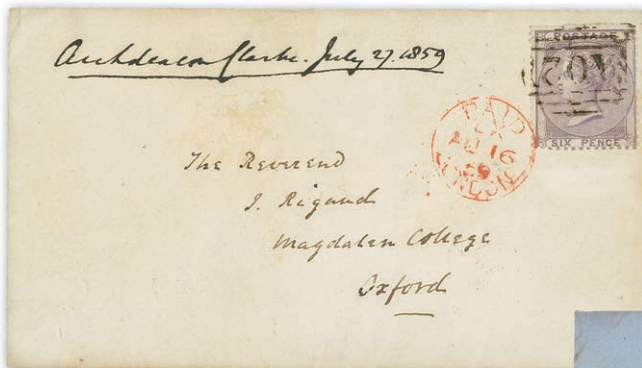 Archdeacon Clarke. July 27. 1859
POSTAGE
A02
SIX PENCE
PAID
LX
AU 16
59
LONDON
The Reverend
J. Rigaud
Magdalen College
Oxford